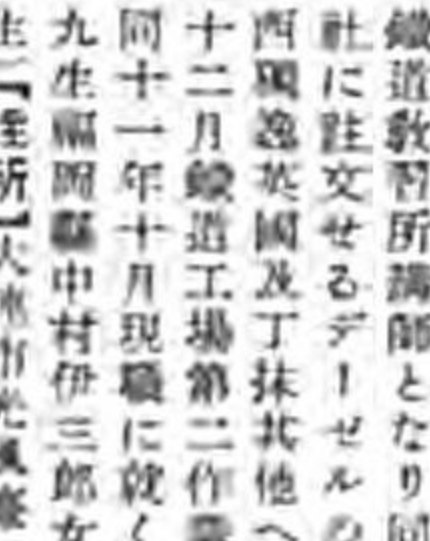 鐵道教習所講師となり同
社に註文せるデーゼルの
西獨逸英國及丁抹其他へ
十二月鐵道工場第二作業
同十一年十月現職に就く
九生福岡縣中村伊三郎女
生【住所】大東市光風臺